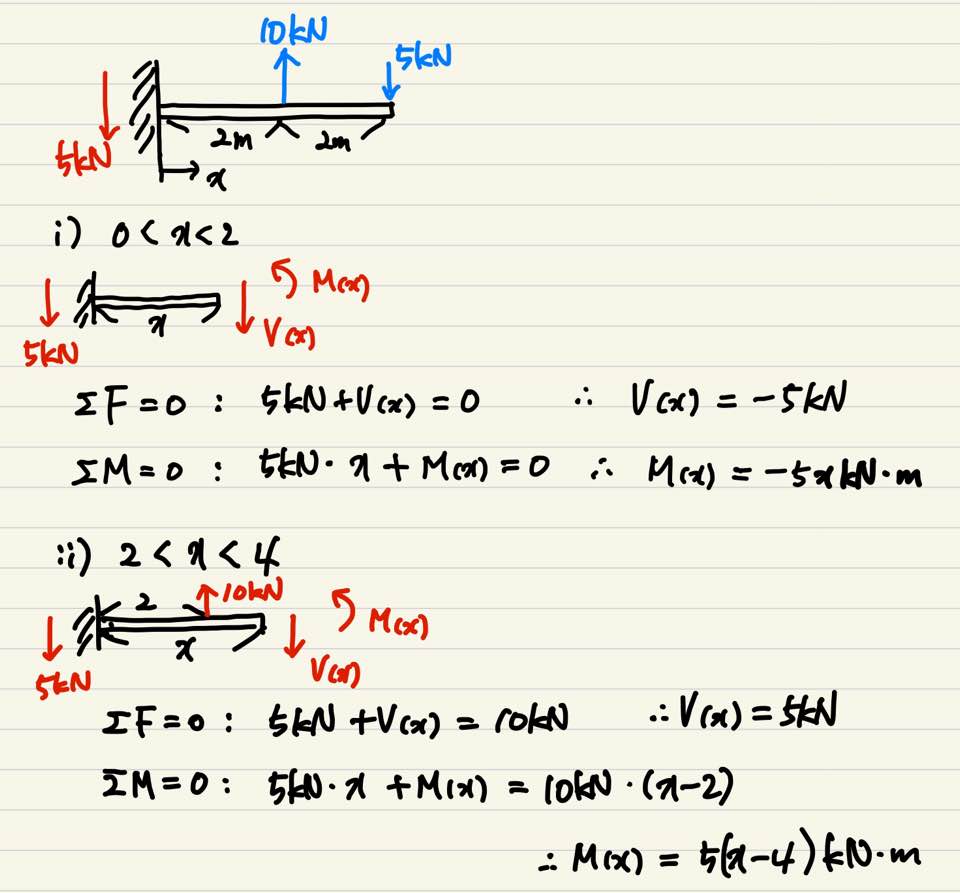 10kN
5kN
5kN
2m 2m
x
i) 0 < x < 2
M(x)
x
V(x)
5kN
ΣF = 0 : 5kN + V(x) = 0 ∴ V(x) = -5kN
ΣM = 0 : 5kN · x + M(x) = 0 ∴ M(x) = -5x kN·m
ii) 2 < x < 4
2 10kN
M(x)
x
V(x)
5kN
ΣF = 0 : 5kN + V(x) = 10kN ∴ V(x) = 5kN
ΣM = 0 : 5kN · x + M(x) = 10kN · (x-2)
∴ M(x) = 5(x-4) kN·m